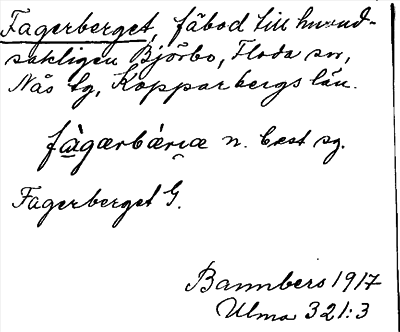 Fagerberget, fäbod till huvud-
sakligen Björbo, Floda sn,
Näs tg, Kopparbergs län.
fàgærbárıæ n. best sg.
Fagerberget G.
Bannbers 1917
Ulma 321:3